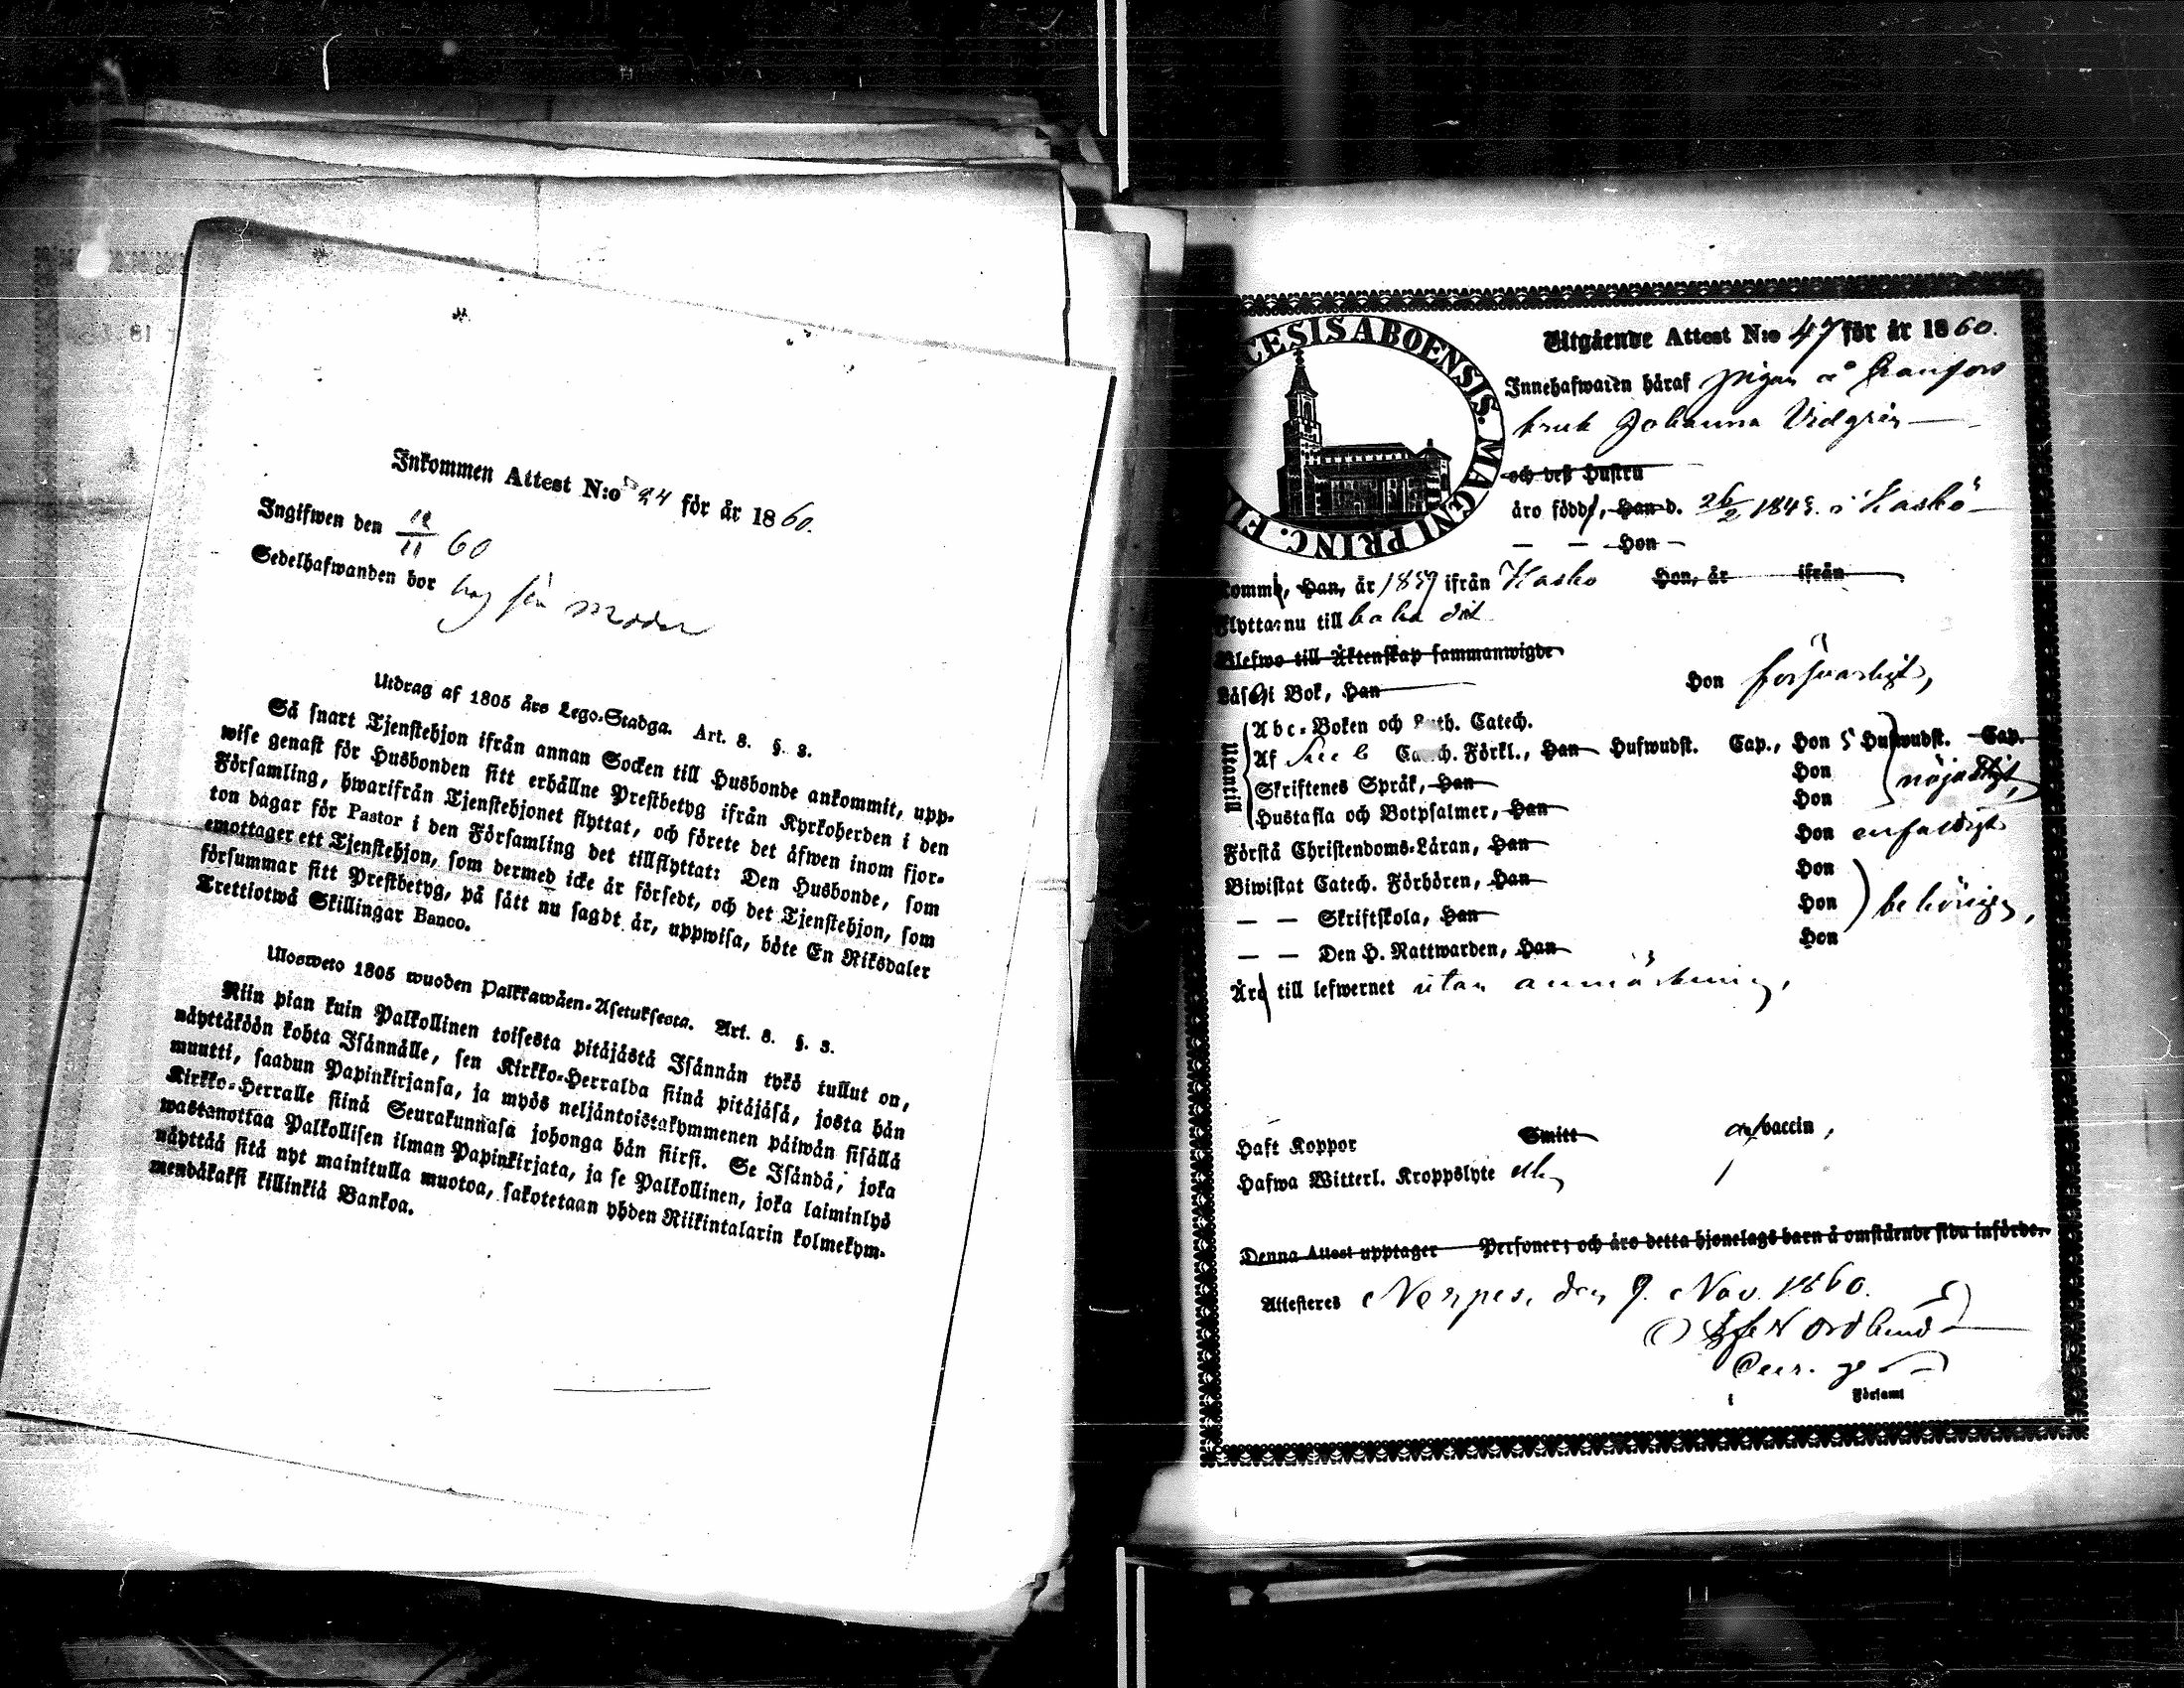 Inkommen Attest N:o 24 för år 1860.
Ingifwen den 12/11 60
Sedelhafwanden bor hos sin Moder
Utdrag af 1805 års Lego-Stadga. Art. 8. §. 3.
Så snart Tjenstehjon ifrån annan Socken till Husbonde ankommit, upp-
wise genast för Husbonden sitt erhållne Prestbetyg ifrån Kyrkoherden i den
Församling, hwarifrån Tjenstehjonet flyttat, och förete det äfwen inom fjor-
ton dagar för Pastor i den Församling det tillflyttat: Den Husbonde, som
emottager ett Tjenstehjon, som dermed icke är försedt, och det Tjenstehjon, som
försummar sitt Prestbetyg, på sätt nu sagdt är, uppwisa, böte En Riksdaler
Trettiotwå Skillingar Banco.
Ulosweto 1805 wuoden Palkkawäen-Asetuksesta. Art. 8. §. 3.
Niin pian kuin Palkollinen toisesta pitäjästä Isännän tykö tullut on,
näyttäköön kohta Isännälle, sen Kirkko-Herralda siinä pitäjäsä, josta hän
muutti, saadun Papinkirjansa, ja myös neljäntoistakymmenen päiwän sisällä
Kirkko-Herralle siinä Seurakunnasa johonga hän siirsi. Se Isändä, joka
wastanottaa Palkollisen ilman Papinkirjata, ja se Palkollinen, joka laiminlyö
näyttää sitä nyt mainitulla muotoa, sakotetaan yhden Riikintalarin kolmekym-
mendäkaksi killinkiä Bankoa.
CESIS ABOENSIS. MAGNI PRINC. FI
Utgående Attest N:o 47 för år 1860.
Innehafwaren häraf pigan å Kranfors
bruk Johanna Vidgrén
och deß Hustru
äro födde, Han d. 26/2 1843. i Kaskö
— — Hon —
komme, Han, år 1859 ifrån Kasko Hon, år ifrån
Flyttar nu till baka dit
Blefwo till Äktenskap sammanwigde
Läser i Bok, Han Hon försvarligt,
Utantill
Abc-Boken och Luth. Catech.
Af Catech. Förkl., Han Hufwudst. Cap., Hon 5 Hufwudst. Cap.
Skriftenes Språk, Han Hon nöjaktigt,
Hustafla och Botpsalmer, Han Hon
Förstå Christendoms-Läran, Han Hon enfaldigt
Biwistat Catech. Förhören, Han Hon
— — Skriftskola, Han Hon behörigen,
— — Den H. Nattwarden, Han Hon
Äro till lefwernet utan anmärkning,
Haft Koppor Smitt af vaccin,
Hafwa Witterl. Kroppslyte ej
Denna Attest upptager Personer; och äro detta hjonelags barn å omstående sida införde.
Attesteres Nerpes, den 9. Nov. 1860.
Nordlund
i Församl